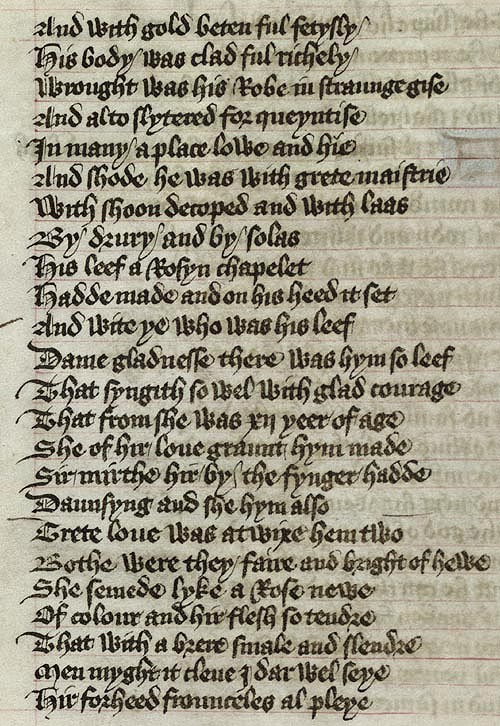 And with gold beten ful fetysly
His body was clad ful richely
Wrought was his Robe in straunge gise
And al to slytered for queyntise
In many a place lowe and hie
And shode he was with grete maistrie
With shoon decoped and with laas
By drury and by solas
His leef a Rosyn chapelet
Hadde made and on his heed it set
And wite ye who was his leef
Dame gladnesse there was hym so leef
That syngith so wel with glad courage
That from she was xij yeer of age
She of hir loue graunt hym made
Sir mirthe hir by the fynger hadde
Daunsyng and she hym also
Grete loue was atwixe hem two
Bothe were they faire and bright of hewe
She semede lyke a Rose newe
Of colour and hir flesh so tendre
That with a brere smale and slendre
Men myght it cleue I dar wel seye
Hir forheed frounceles al pleye